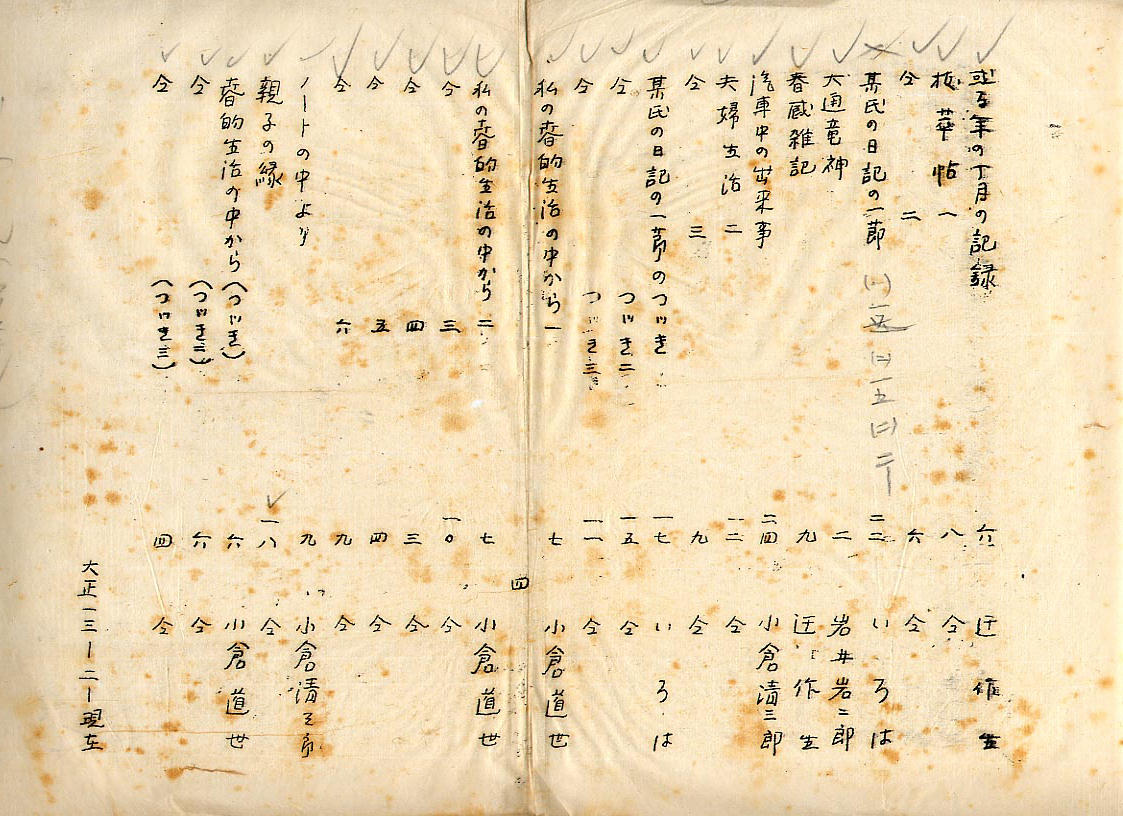 或る年の一ヶ月の記録 六 迂作生
抜華帖 一 八 仝
仝 二 六 仝
某氏の日記の一節 二二 いろは
大通竜神 二 岩井岩二郎
春蔵雑記 九 迂作生
汽車中の出来事 二四 小倉清三郎
夫婦生活 二 一二 仝
仝 三 九 仝
某氏の日記の一節のつゞき 一七 いろは
仝 つゞき二 一五 仝
仝 つゞき三 一一 仝
私の春的生活の中から 一 七 小倉道世
四
私の春的生活の中から 二 七 小倉道世
仝 三 一〇 仝
仝 四 三 仝
仝 五 四 仝
仝 六 九 仝
ノートの中より 九 小倉清三郎
親子の縁 一八 仝
春的生活の中から(つゞき) 六 小倉道世
仝 (つゞき二) 六 仝
仝 (つゞき三) 四 仝
大正一三ー二ー現在